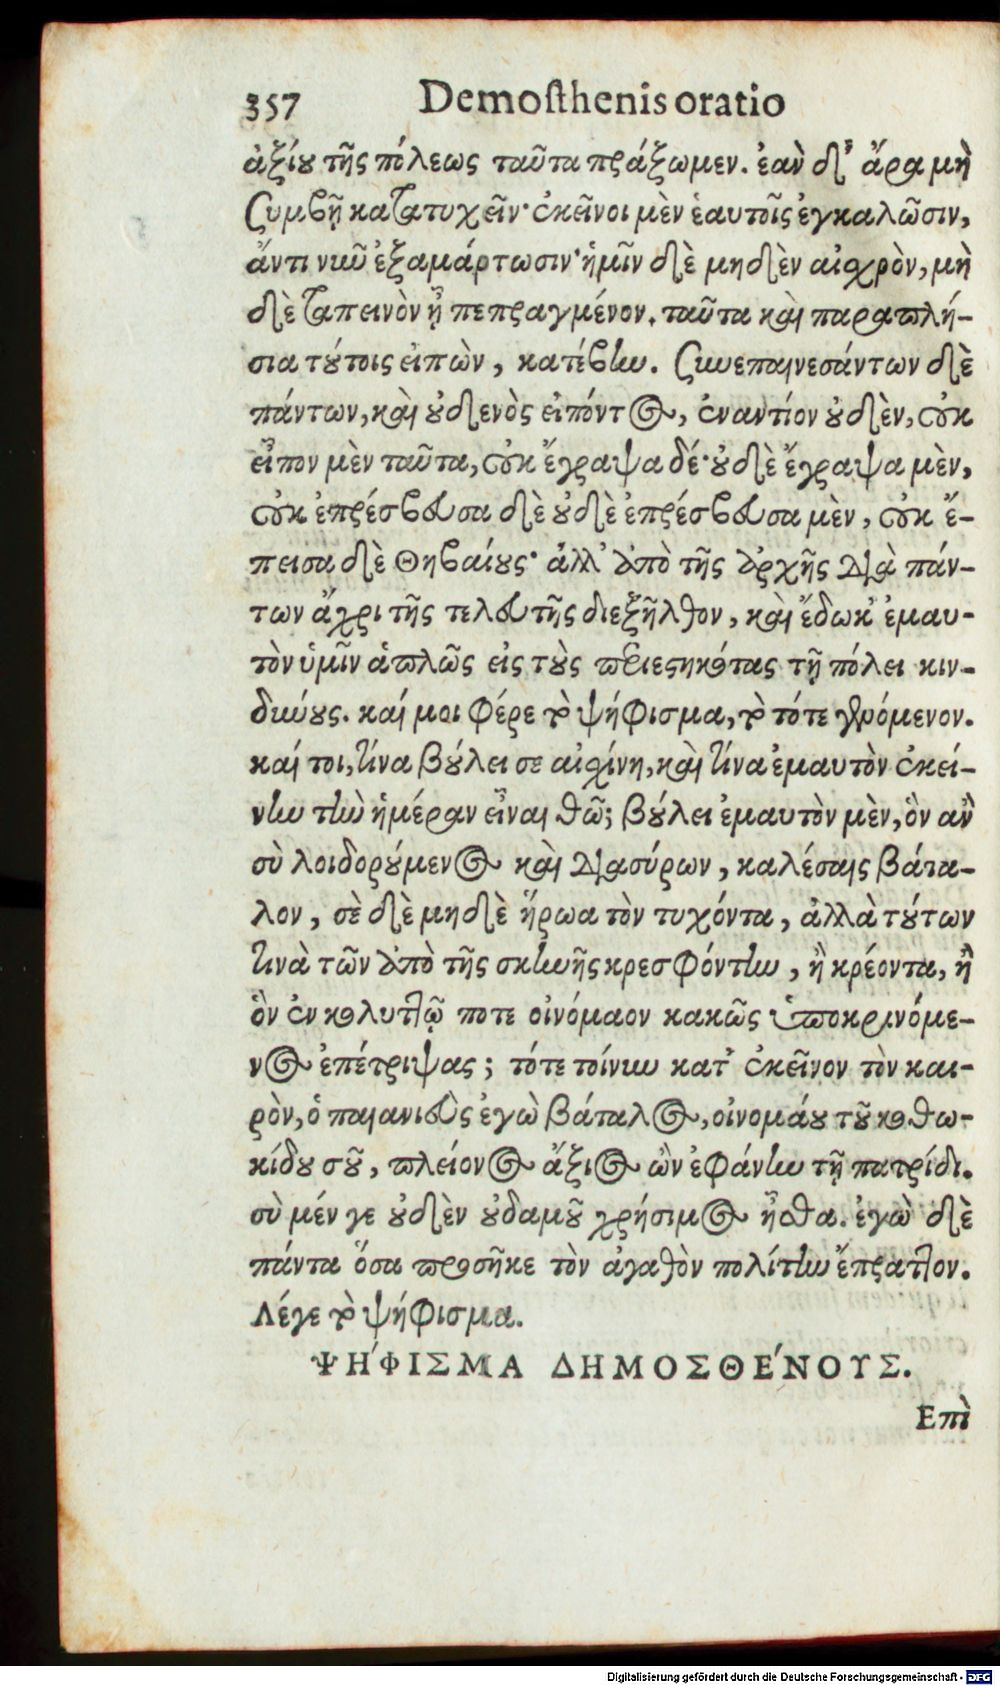 357 Demosthenis oratio
ἀξίου τῆς πόλεως ταῦτα πράξωμεν. ἐὰν δ' ἄρα μὴ
συμβῇ κατατυχεῖν· ἐκεῖνοι μὲν ἑαυτοῖς ἐγκαλῶσιν,
ἄντι νυῦ ἐξαμάρτωσιν· ἡμῖν δὲ μηδὲν αἰσχρὸν, μὴ
δὲ ταπεινὸν ᾖ πεπραγμένον. ταῦτα καὶ παραπλή-
σια τούτοις εἰπὼν, κατέβην. συνεπαινεσάντων δὲ
πάντων, καὶ οὐδενὸς εἰπόντος, ἐναντίον οὐδὲν, οὐκ
εἶπον μὲν ταῦτα, οὐκ ἔγραψα δέ· οὐδὲ ἔγραψα μὲν,
οὐκ ἐπρέσβευσα δὲ οὐδὲ ἐπρέσβευσα μὲν, οὐκ ἔ-
πεισα δὲ Θηβαίους· ἀλλ' ἀπὸ τῆς ἀρχῆς διὰ πάν-
των ἄχρι τῆς τελευτῆς διεξῆλθον, καὶ ἔδωκ' ἐμαυ-
τὸν ὑμῖν ἁπλῶς εἰς τοὺς περιεστηκότας τῇ πόλει κιν-
δύνους. καί μοι φέρε τὸ ψήφισμα, τὸ τότε γενόμενον.
καί τοι, τίνα βούλει σε αἰσχίνη, καὶ τίνα ἐμαυτὸν ἐκεί-
νην τὴν ἡμέραν εἶναι θῶ; βούλει ἐμαυτὸν μὲν, ὃν ἂν
σὺ λοιδορούμενος καὶ διασύρων, καλέσαις βάτα-
λον, σὲ δὲ μηδὲ ἥρωα τὸν τυχόντα, ἀλλὰ τούτων
τινὰ τῶν ἀπὸ τῆς σκηνῆς κρεσφόντην, ἢ κρέοντα, ἢ
ὃν ἐν κολυττῷ ποτε οἰνόμαον κακῶς ὑποκρινόμε-
νος ἐπέτριψας; τότε τοίνυν κατ' ἐκεῖνον τὸν και-
ρὸν, ὁ παιανιεὺς ἐγὼ βάταλος, οἰνομάου τοῦ κοθω-
κίδου σοῦ, πλείονος ἄξιος ὢν ἐφάνην τῇ πατρίδι.
σὺ μέν γε οὐδὲν οὐδαμοῦ χρήσιμος ἦσθα. ἐγὼ δὲ
πάντα ὅσα προσῆκε τὸν ἀγαθὸν πολίτην ἔπραττον.
Λέγε τὸ ψήφισμα.
ΨΗ΄ΦΙΣΜΑ ΔΗΜΟΣΘΕ΄ΝΟΥΣ.
Επὶ
Digitalisierung gefördert durch die Deutsche Forschungsgemeinschaft - DFG